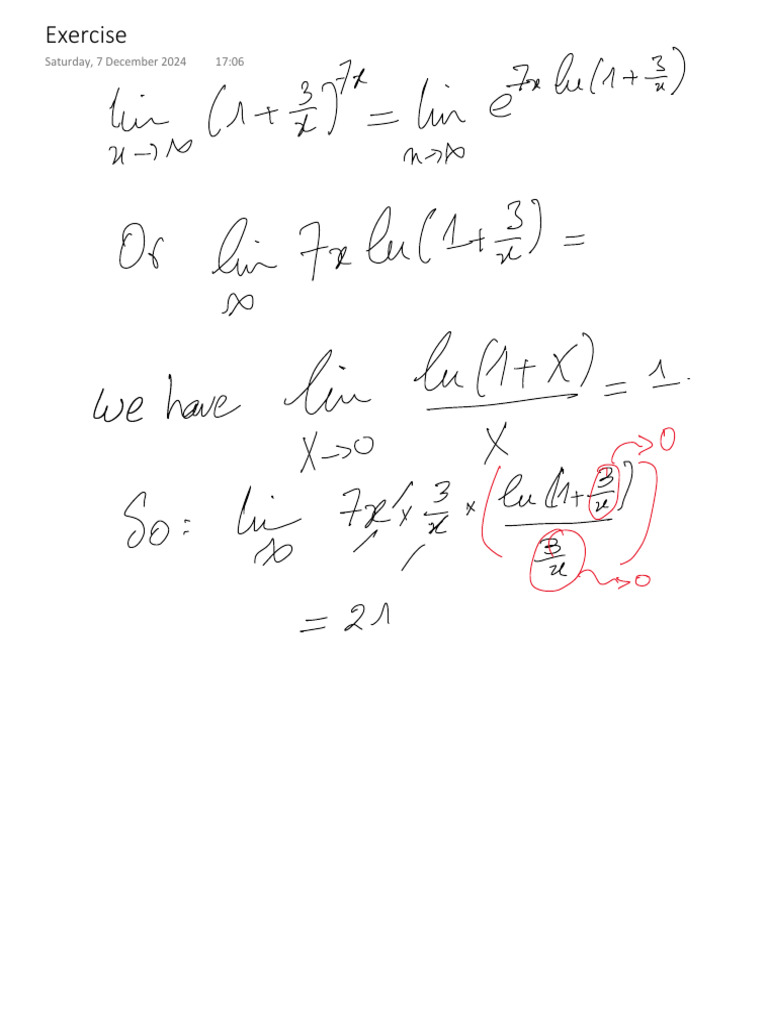 Exercise
Saturday, 7 December 2024 17:06
lim x→∞ (1 + 3/x)^7x = lim x→∞ e^7x ln(1 + 3/x)
Or lim ∞ 7x ln(1 + 3/x) =
we have lim X→0 ln(1+X)/X = 1.
So: lim ∞ 7x × 3/x × (ln(1 + 3/x)/(3/x)) →0 →0
= 21